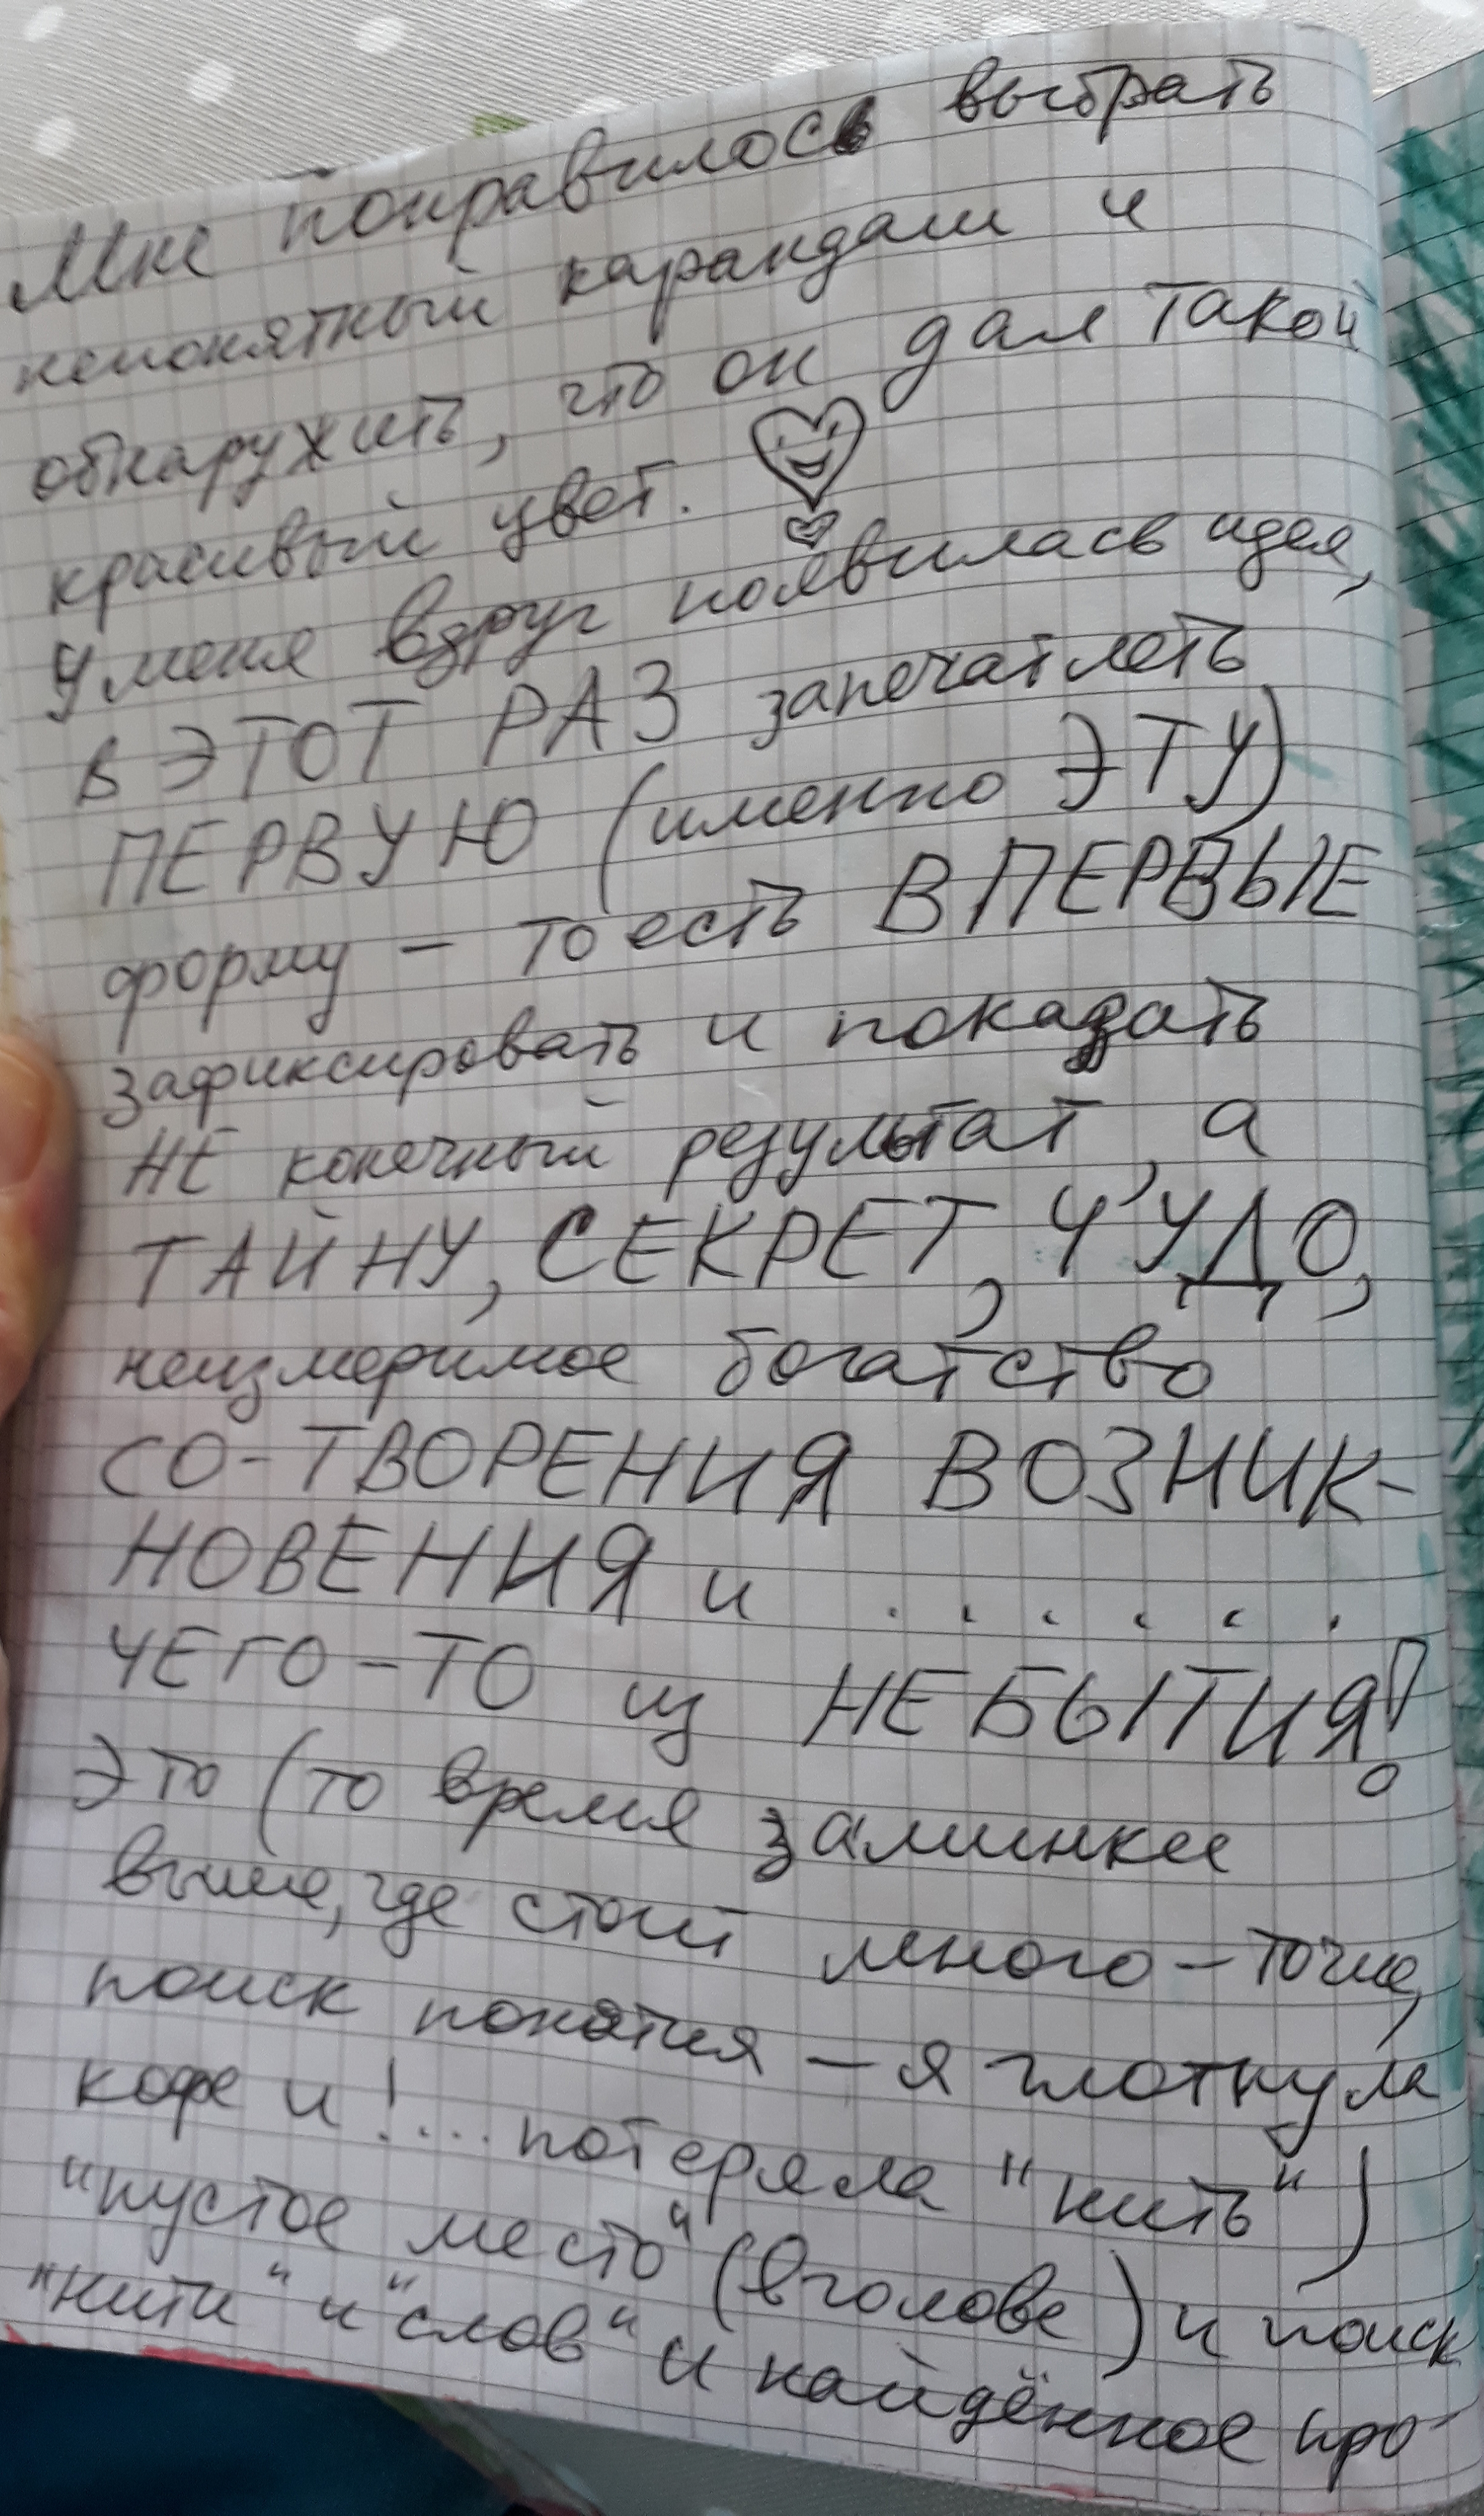 Мне понравилось выбрать
непонятный карандаш и
обнаружить, что он дал такой
красивый цвет.
У меня вдруг появилась идея,
в ЭТОТ РАЗ запечатлеть
ПЕРВУЮ (именно ЭТУ)
форму – то есть ВПЕРВЫЕ
зафиксировать и показать
НЕ конечный результат, а
ТАЙНУ, СЕКРЕТ, ЧУДО,
неизмеримое богатство
СО-ТВОРЕНИЯ ВОЗНИК-
НОВЕНИЯ и . . . . . .
ЧЕГО-ТО из НЕБЫТИЯ!
Это (то время заминки
выше, где стоит много-точие,
поиск понятия – я глотнула
кофе и !.... потеряла "нить")
"пустое место" (в голове) и поиск
"нити" и "слов" и найденное про-